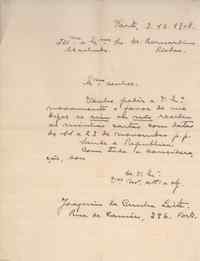 Porto, 2-12-1908.
Ill.mo e Ex.mo Sr. Dr. Bernardino
Machado. Lisboa.
Ex.mo Senhor.
Venho pedir a V. Ex.a
novamente o favor de me
dizer se sim ou não recebeu
as minhas cartas com datas
de 22 de novembro p.p.
Saude e Republica.
Com toda a considera-
ção, sou
De V. Ex.a
Joaquim da Cunha Leite.
Rua de 226. Porto.